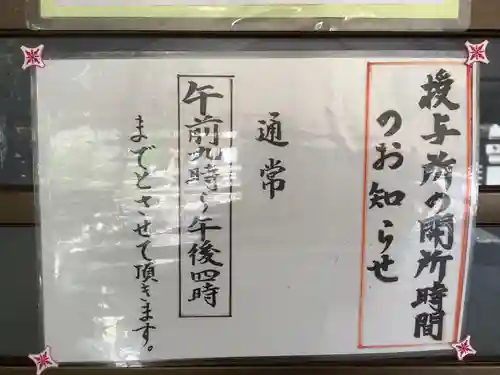 授与所の開所時間
のお知らせ
通常
午前九時〜午後四時
までとさせて頂きます。